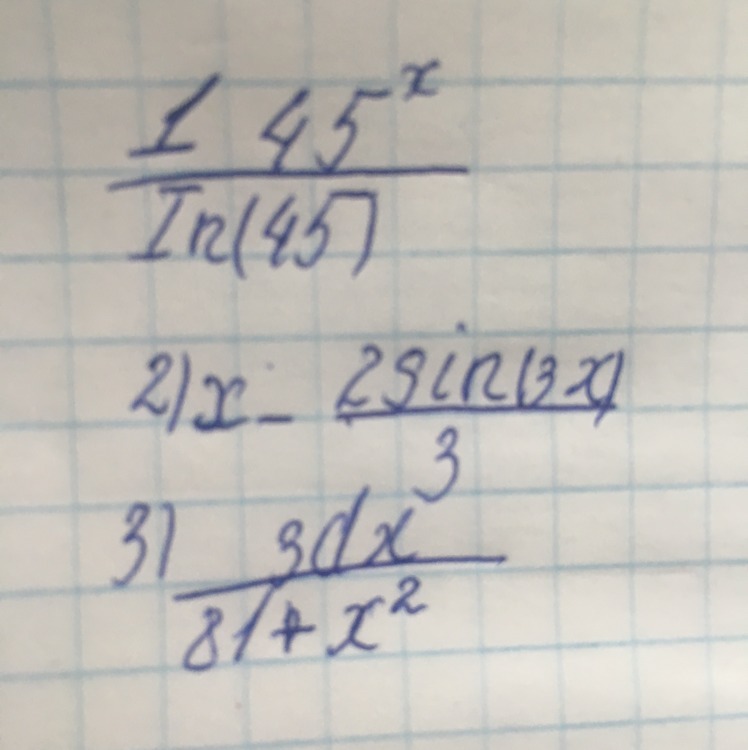 1 45^x
In(45)
2) x - 2sin(3x)
3
3) 3dx
81 + x²